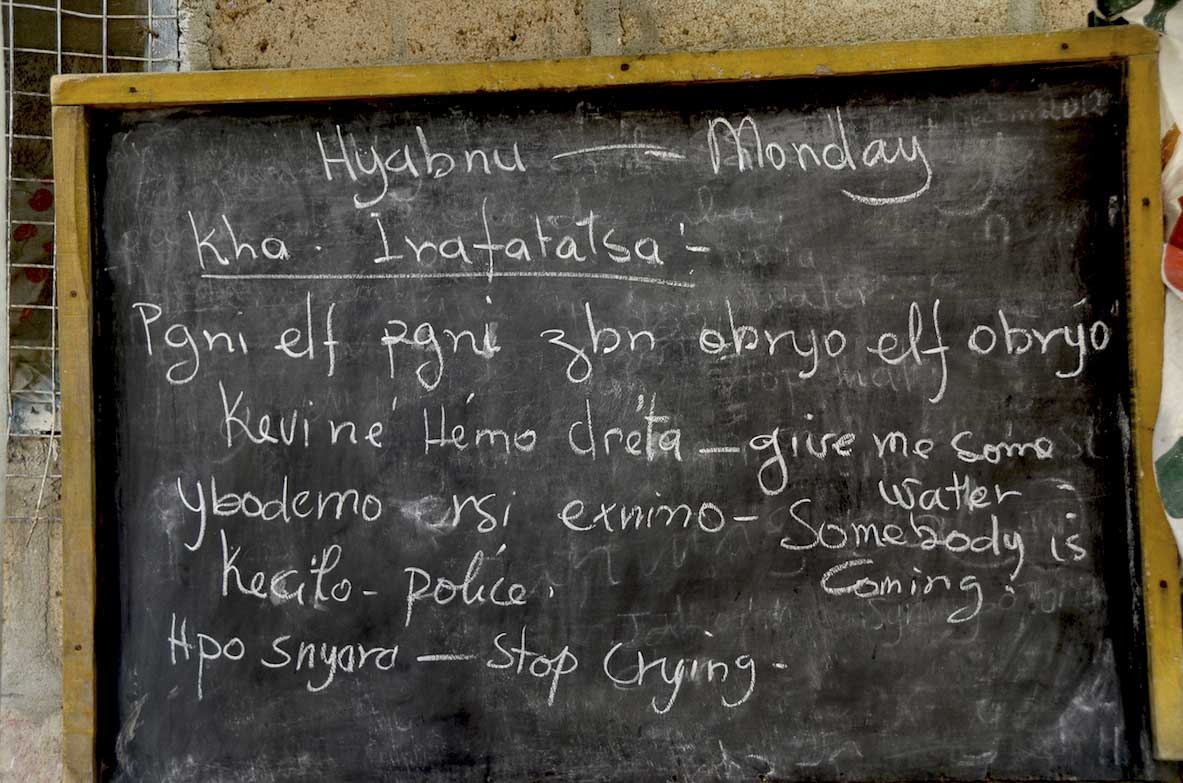 Hyabnu — Monday
Kha. Irafatatsa :-
Pgni elf pgni zbn obryo elf obryo
Keviné Hémo dréta — give me some
water
ybodemo ersi exnino - Somebody is
coming.
Kecito - police.
Hpo snyara — Stop Crying -